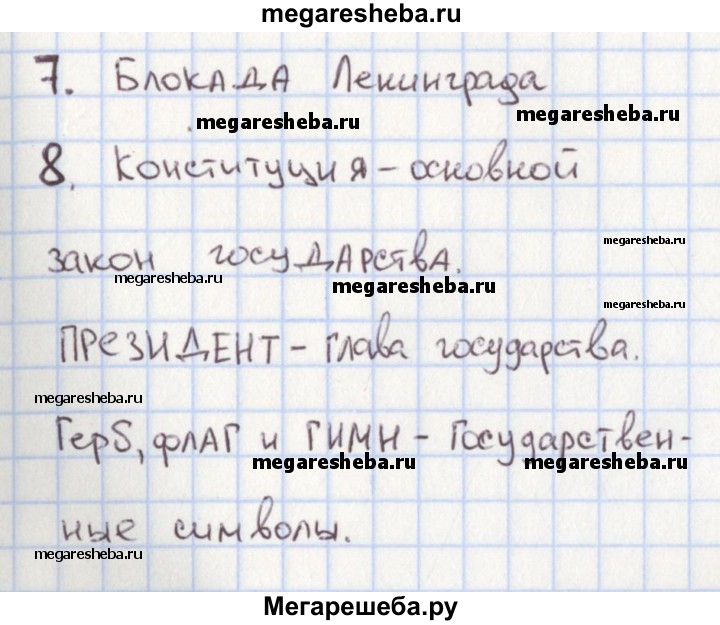 megaresheba.ru
7. БЛОКАДА Ленинграда
megaresheba.ru
megaresheba.ru
8. Конституция - основной
megaresheba.ru
закон государства.
megaresheba.ru
megaresheba.ru
megaresheba.ru
ПРЕЗИДЕНТ - глава государства.
megaresheba.ru
Герб, флаг и ГИМН - Государствен-
megaresheba.ru
megaresheba.ru
ные символы.
megaresheba.ru
Мегарешеба.ру